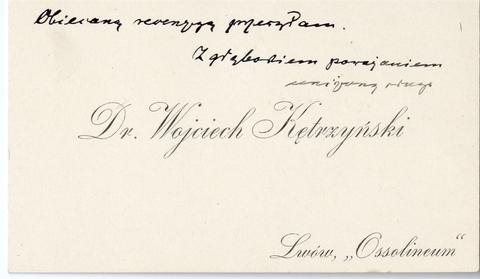 Obiecaną recenzyą przesyłam.
Z głębokiem poważaniem
uniżony sługa
Dr. Wojciech Kętrzyński
Lwów, „Ossolineum“